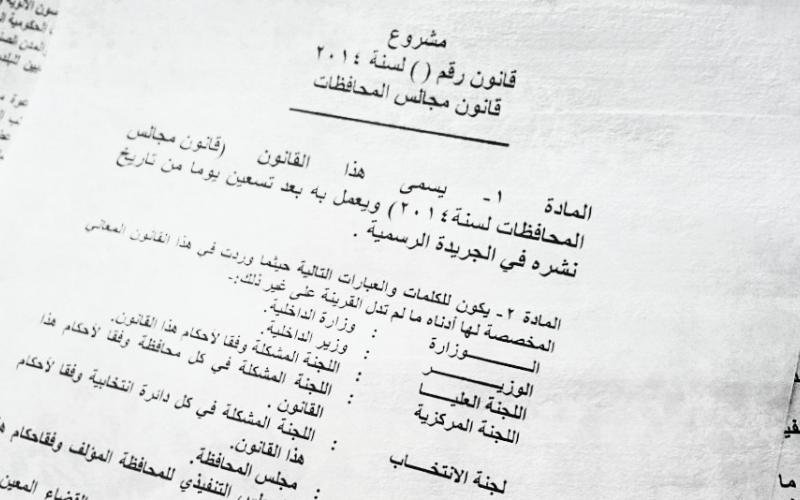 مشروع
قانون رقم ( ) لسنة ٢٠١٤
قانون مجالس المحافظات
المادة ١- يسمى هذا القانون (قانون مجالس
المحافظات لسنة ٢٠١٤) ويعمل به بعد تسعين يوما من تاريخ
نشره في الجريدة الرسمية .
المادة ٢- يكون للكلمات والعبارات التالية حيثما وردت في هذا القانون المعاني
المخصصة لها أدناه ما لم تدل القرينة على غير ذلك:-
الـــــــوزارة : وزارة الداخلية.
الوزيـــــــر : وزير الداخلية.
اللجنة العليـــا : اللجنة المشكلة وفقا لأحكام هذا القانون.
اللجنة المركزية : اللجنة المشكلة في كل محافظة وفقا لأحكام هذا
القانون .
لجنة الانتخـــاب : اللجنة المشكلة في كل دائرة انتخابية وفقا لأحكام
هذا القانون.
: مجلس المحافظة.
التنفيذي للمحافظة المؤلف وفقاحكام
القضاء المعين